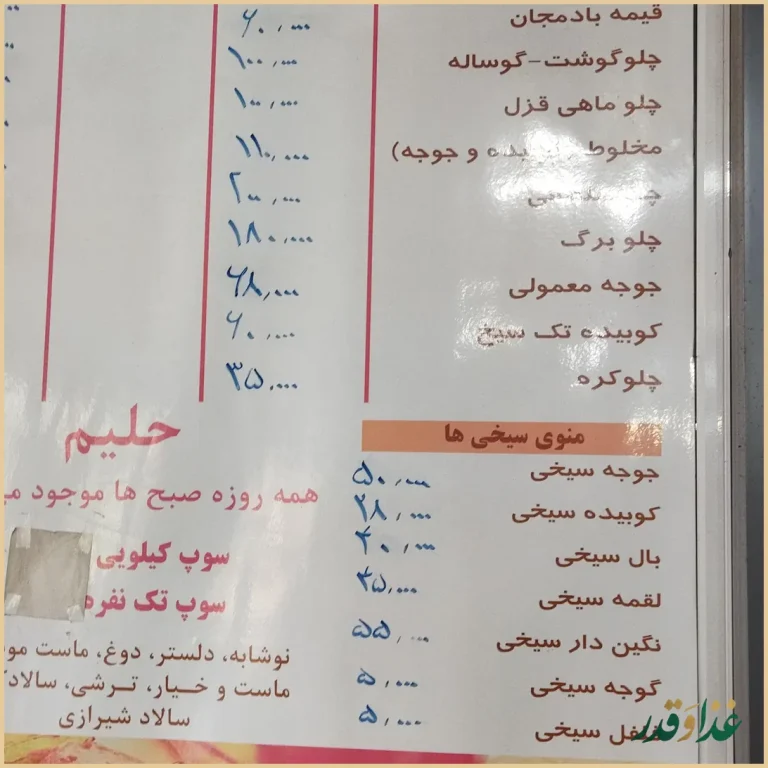 قیمه بادمجان ۶۰,۰۰۰
چلوگوشت-گوساله ۱۰۰,۰۰۰
چلو ماهی قزل ۱۰۰,۰۰۰
مخلوط و جوجه) ۱۱۰,۰۰۰
۲۰۰,۰۰۰
چلو برگ ۱۸۰,۰۰۰
جوجه معمولی ۶۸,۰۰۰
کوبیده تک سیخ ۶۰,۰۰۰
چلوکره ۳۵,۰۰۰
منوی سیخی ها
جوجه سیخی ۵۰,۰۰۰
کوبیده سیخی ۳۸,۰۰۰
بال سیخی ۴۰,۰۰۰
لقمه سیخی ۴۵,۰۰۰
نگین دار سیخی ۵۵,۰۰۰
گوجه سیخی ۵,۰۰۰
فلفل سیخی ۵,۰۰۰
حلیم
همه روزه صبح ها موجود
سوپ کیلویی
سوپ تک نفره
نوشابه، دلستر، دوغ، ماست
ماست و خیار، ترشی،
سالاد شیرازی
غذا و قدر